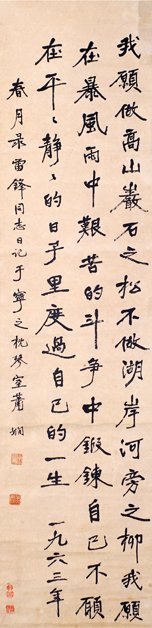 我願做高山巖石之松不做湖岸河旁之柳我願
在暴風雨中艱苦的斗争中鍛鍊自己不願
在平々静々的日子里度過自己的一生 一九六三年
春月录雷鋒同志日记于寧之枕琴室蕭嫻